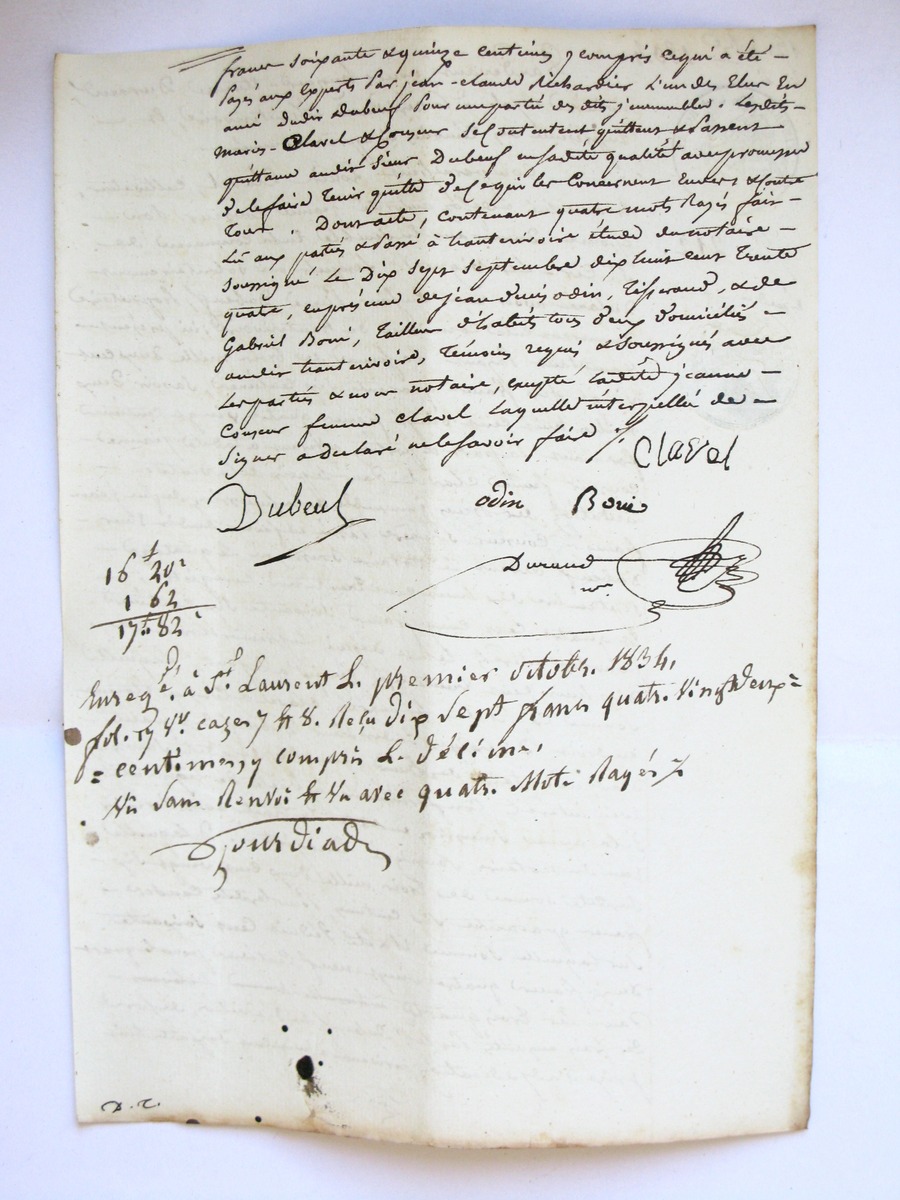 francs soixante & quinze centimes y compris ce qui a été -
Payé aux Experts Par jean-claude Richardier l'un des Elus En
ami dudit Dubeuf Pour une partie des dits immeubles. Lesdits -
Mariés - Clavel & Couzeur se Contentent quittent & Passent
quittance audit Sieur Dubeuf en sadite qualité avec promesse
de le faire Tenir quitte de Ce qui les Concernent Envers & Contre
Tous. Dont acte, Contenant quatre mots Rayés fait -
Lu aux parties & Passé à hauterivoire étude du notaire -
Soussigné Le Dix sept septembre dix huit cent Trente
quatre, en présence de jean odin, Tisserand, & de
Gabriel Borie, Tailleur d'habits tous deux Domiciliés -
audit hauterivoire, Témoins requis & Soussignés avec
Les parties & nous notaire, excepté Ladite jeanne -
Couzeur femme Clavel Laquelle interpellée de -
Signer a déclaré ne le savoir faire %.
Clavel
Dubeuf
odin Borie
Durand
nre
16 f 20 c
1 62
17 f 82 c
Enregé. à St. Laurent L. premier octobr. 1834,
fol. Vo. cazes 7 et 8. Reçu Dix Sept francs quatr. Vingt Deux =
= centimes y compris L. Décime.
Un Sans Renvoi et Un avec quatr. Mots Rayés %
Gourdiad
D. T.